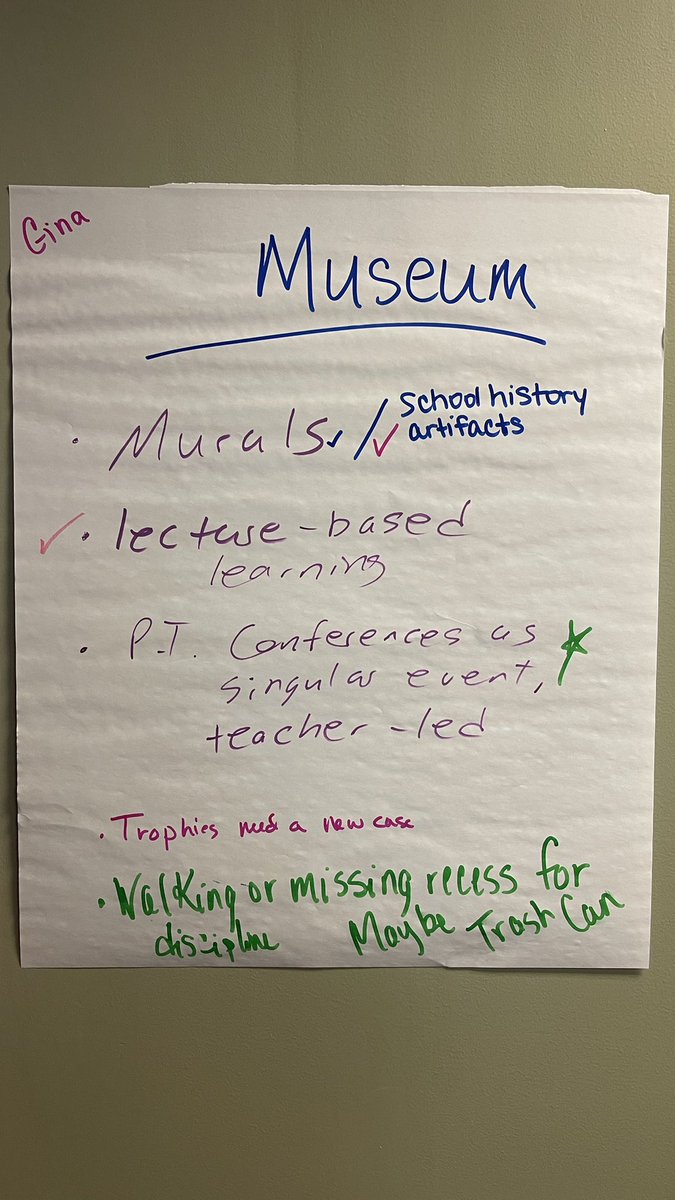 Gina
Museum
• Murals ✓ / ✓ school history
artifacts
✓ • lecture-based
learning
• P.T. Conferences as ☆
singular event,
teacher-led
• Trophies need a new case
• Walking or missing recess for
discipline Maybe Trash Can